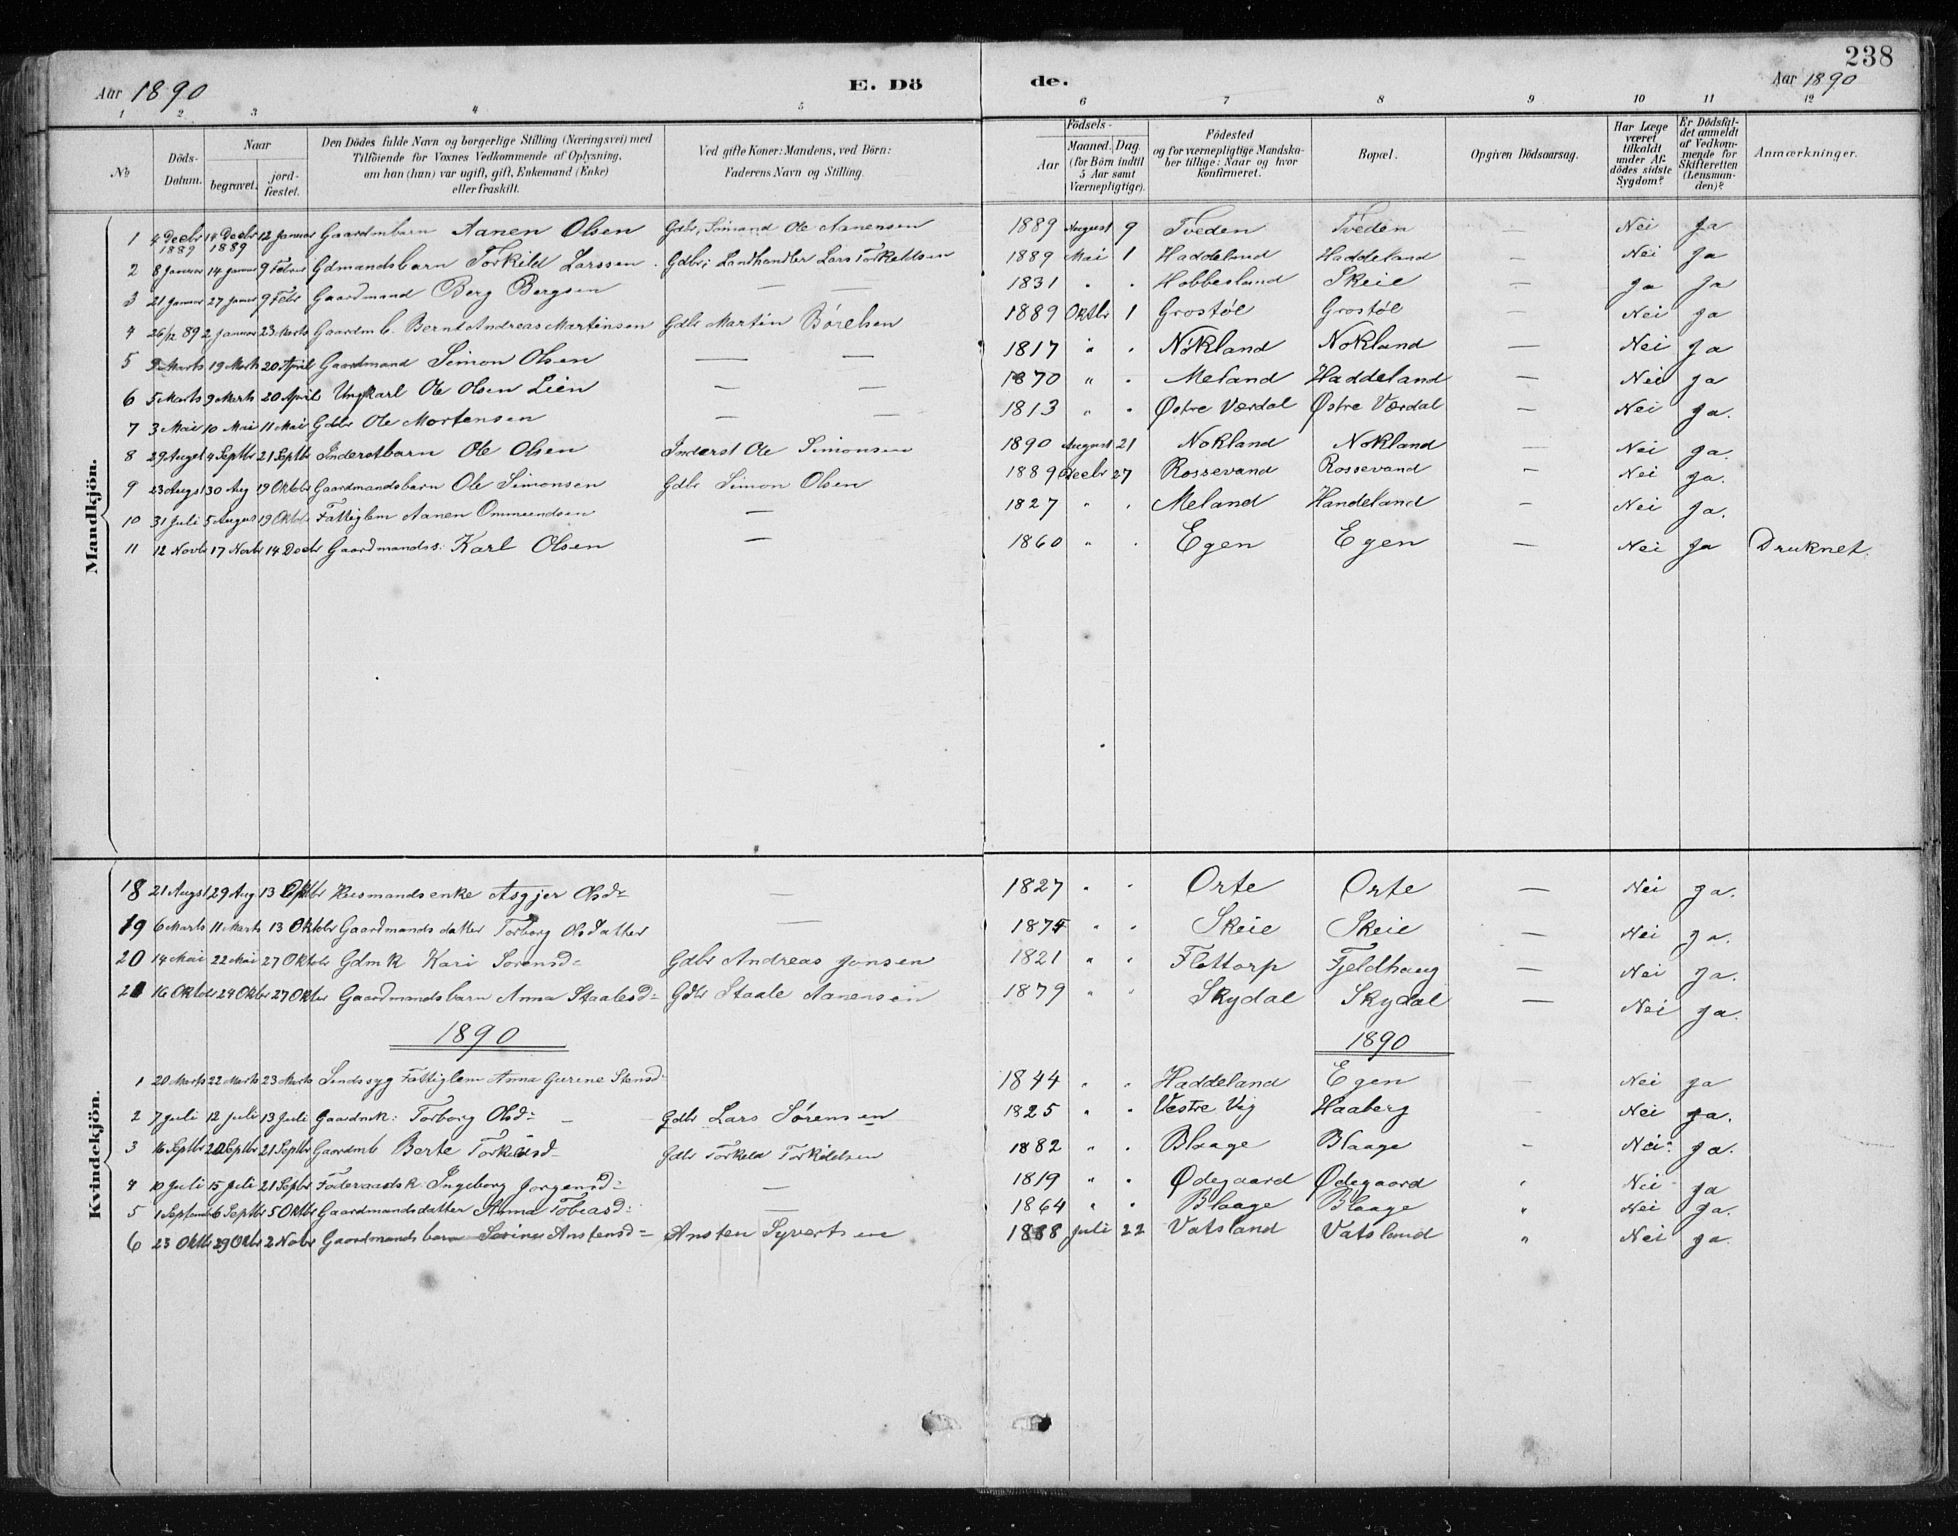 238
Aar 1890 E. Dö de. Aar 1890
1 2 3 4 5 6 7 8 9 10 11 12
№ Döds-Datum. Naar begravet. jordfæstet. Den Dödes fulde Navn og borgerlige Stilling (Næringsvei) med Tilföiende for Voxnes Vedkommende af Oplysning, om han (hun) var ugift, gift, Enkemand (Enke) eller fraskilt. Ved gifte Koner: Mandens, ved Børn: Faderens Navn og Stilling. Födsels- Aar Maaned. Dag. (for Börn indtil 5 Aar samt Værnepligtige). Födested og for værnepligtige Mandskaber tillige: Naar og hvor konfirmeret. Bopæl. Opgiven Dödsaarsag. Har Læge været tilkaldt under Afdödes sidste Sygdom? Er Dödsfaldet anmeldt af Vedkommende for Skifteretten (Lensmanden)? Anmærkninger.
Mandkjön.
1 4 Decbr 1889 14 Decbr 1889 12 Januar Gaardmbarn Aanen Olsen Gdbr, Sömand Ole Aanensen 1889 August 9 Tveden Tveden — Nei Ja
2 8 Januar 14 Januar 9 Febr Gdmandsbarn Torkild Larssen Gdbr; Landhandler Lars Torkeldsen 1889 Mai 1 Haddeland Haddeland — Nei Ja
3 21 Januar 27 Januar 9 Febr Gaardmand Berg Bergsen — — 1831 " " Hobbesland Skeie — Ja Ja
4 26/12 89 2 Januar 23 Marts Gaardmb. Bernt Andreas Martinsen Gdbr Martin Börelsen 1889 Oktbr 1 Grostøl Grostøl — Nei Ja
5 Marts 19 Marts 20 April Gaardmand Simon Olsen — — 1817 " " Nökland Nökland — Nei Ja
6 5 Marts 9 Marts 20 April Ungkarl Ole Olsen Lien — — 1870 " " Meland Haddeland — Nei Ja
7 3 Mai 10 Mai 11 Mai Gdbr Ole Mortensen — — 1813 " " Østre Værdal Østre Værdal — Nei Ja.
8 29 Augst 4 Septbr 21 Septbr Inderstbarn Ole Olsen Inderst Ole Simonsen 1890 August 21 Nokland Nokland — Nei Ja.
9 23 Augst 30 Aug 19 Oktobr Gaardmandsbarn Ole Simonsen Gdbr Simon Olsen 1889 Decbr 27 Rossevand Rossevand — Nei Ja.
10 31 Juli 5 August 19 Oktobr Fattiglem Aanen Ommundsen — 1827 " " Meland Handeland — Nei Ja.
11 12 Novbr 17 Novbr 14 Decbr Gaardmands: Karl Olsen — 1860 " " Egen Egen — Nei Ja Druknet.
Kvindekjön.
18 21 Augst 29 Aug 13 Oktbr Husmandsenke Asgjer Olsd — 1827 " " Orte Orte — Nei Ja.
19 6 Marts 11 Marts 13 Oktobr Gaardmandsdatter Torborg Olsdatter — 1875 " " Skeie Skeie — Nei Ja.
20 14 Mai 22 Mai 27 Oktobr GdmK Kari Sorensd Gdbr Andreas Jonsen 1821 " " Flottorp Fjeldhaug — Nei Ja.
21 16 Oktobr 24 Oktbr 27 Oktbr Gaardmandsbarn Anna Staalesd Gdbr Staale Aanensen 1879 " " Skydal Skydal — Nei Ja.
1890 1890
1 20 Marts 22 Marts 23 Marts Sindssyg Fattiglem Anna Gurine Stensd 1844 " " Haddeland Egen — Nei Ja
2 7 Juli 12 Juli 13 Juli Gaardmk: Torborg Olsd — Gdbr Lars Sørensen 1825 " " Vestre Vig Haaberg — Nei Ja.
3 16 Septbr 20 Septbr 21 Septbr Gaardmb Berte Torkildsd Gdbr Torkeld Torkildsen 1882 " " Blaage Blaage — Nei Ja.
4 10 Juli 15 Juli 21 Septbr Föderaadsk. Ingeborg Jorgensd — 1819 " " Ødegaard Ødegaard " Nei Ja
5 1 September 6 Septbr 5 Oktbr Gaardmandsdatter Anna Tobiasd — 1864 " " Blaage Blaage " Nei Ja.
6 23 Oktbr 29 Oktbr 2 Novbr Gaardmandsbarn Serine Anstensd Ansten Syvertsen 1888 Juli 22 Vatsland Vatsland " Nei Ja.